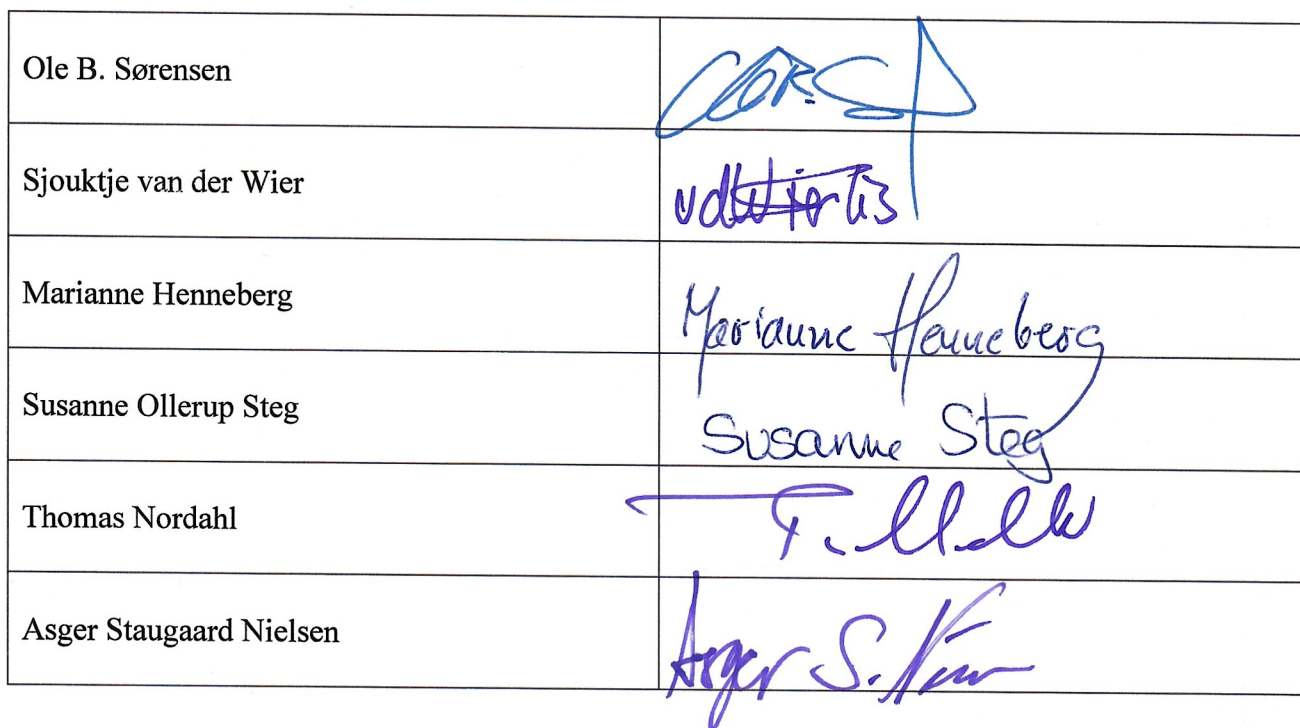 Ole B. Sørensen
Sjouktje van der Wier
Marianne Henneberg
Marianne Henneberg
Susanne Ollerup Steg
Susanne Steg
Thomas Nordahl
Asger Staugaard Nielsen
Asger S.